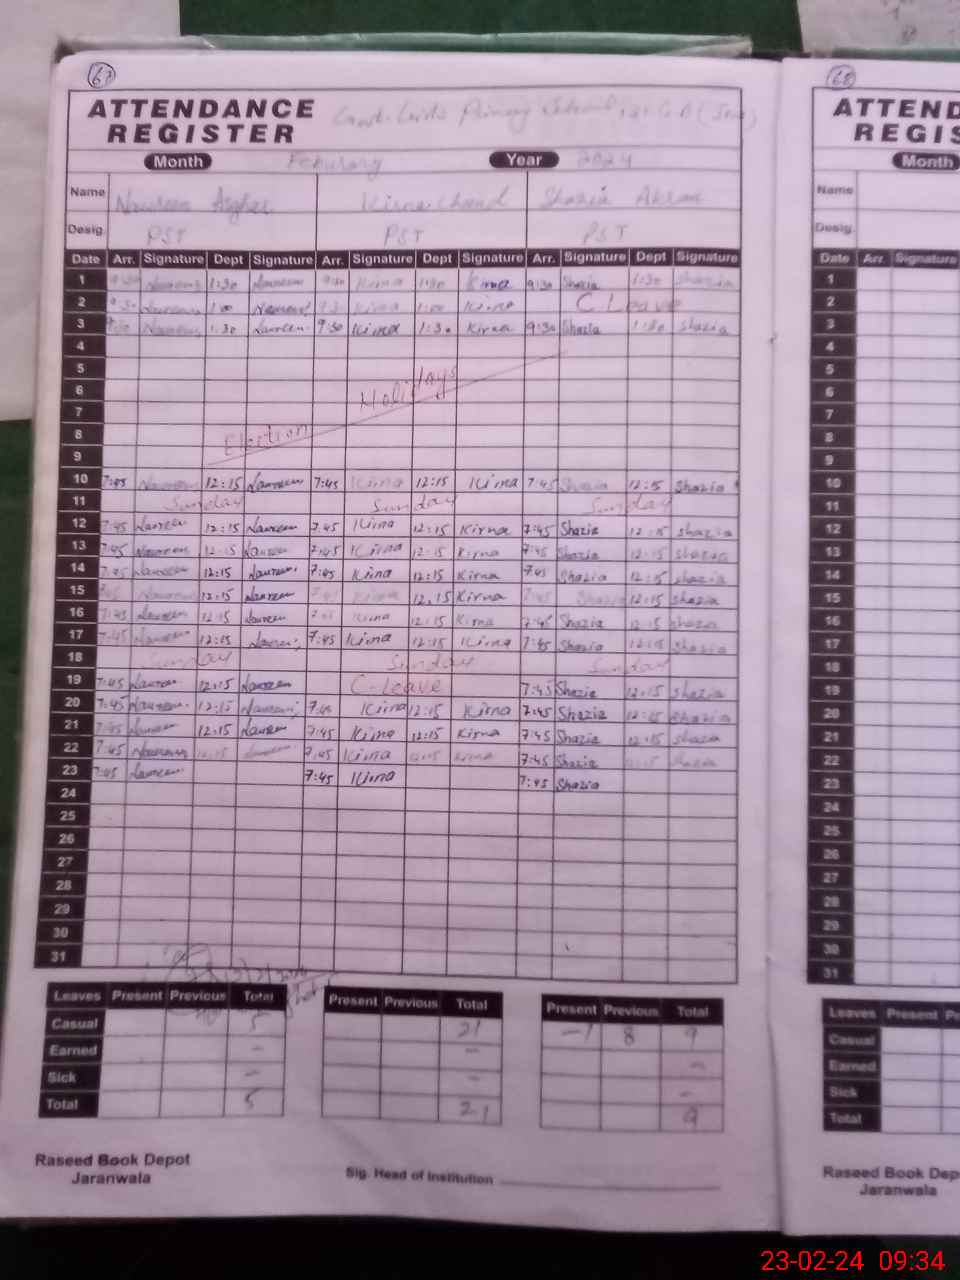 67
ATTENDANCE
REGISTER
Govt. Girls Primary School
Month Feburary Year 2024
Name Nowreen Asghar Kirna Chand Shazia Akram
Desig. PST PST PST
Date Arr. Signature Dept Signature Arr. Signature Dept Signature Arr. Signature Dept Signature
1 9:30 Nowreen 1:30 Nowreen 9:30 Kirna 1:30 Kirna 9:30 Shazia 1:30 Shazia
2 9:30 Nowreen 1:00 Nowreen 9:30 Kirna 1:00 Kirna C. Leave
3 9:30 Nowreen 1:30 Nowreen 9:30 Kirna 1:30 Kirna 9:30 Shazia 1:30 Shazia
4
5
6 Holidays
7
8 Election
9
10 7:45 Nowreen 12:15 Nowreen 7:45 Kirna 12:15 Kirna 7:45 Shazia 12:15 Shazia
11 Sunday Sunday Sunday
12 7:45 Nowreen 12:15 Nowreen 7:45 Kirna 12:15 Kirna 7:45 Shazia 12:15 Shazia
13 7:45 Nowreen 12:15 Nowreen 7:45 Kirna 12:15 Kirna 7:45 Shazia 12:15 Shazia
14 7:45 Nowreen 12:15 Nowreen 7:45 Kirna 12:15 Kirna 7:45 Shazia 12:15 Shazia
15 7:45 Nowreen 12:15 Nowreen 7:45 Kirna 12:15 Kirna Shazia 12:15 Shazia
16 7:45 Nowreen 12:15 Nowreen 7:45 Kirna 12:15 Kirna 7:45 Shazia 12:15 Shazia
17 7:45 Nowreen 12:15 Nowreen 7:45 Kirna 12:15 Kirna 7:45 Shazia 12:15 Shazia
18 Sunday Sunday Sunday
19 7:45 Nowreen 12:15 Nowreen C-Leave 7:45 Shazia 12:15 Shazia
20 7:45 Nowreen 12:15 Nowreen 7:45 Kirna 12:15 Kirna 7:45 Shazia 12:15 Shazia
21 7:45 Nowreen 12:15 Nowreen 7:45 Kirna 12:15 Kirna 7:45 Shazia 12:15 Shazia
22 7:45 Nowreen 12:15 Nowreen 7:45 Kirna 12:15 Kirna 7:45 Shazia 12:15 Shazia
23 7:45 Nowreen 7:45 Kirna 7:45 Shazia
24
25
26
27
28
29
30
31
Leaves Present Previous Total Present Previous Total Present Previous Total
Casual 5 21 -1 8 9
Earned - - -
Sick - - -
Total 5 21 9
Raseed Book Depot
Jaranwala
Sig. Head of Institution
68
ATTEND
REGIS
Month
Name
Desig.
Date Arr. Signature
1
2
3
4
5
6
7
8
9
10
11
12
13
14
15
16
17
18
19
20
21
22
23
24
25
26
27
28
29
30
31
Leaves Present Pr
Casual
Earned
Sick
Total
Raseed Book Dep
Jaranwala
23-02-24 09:34